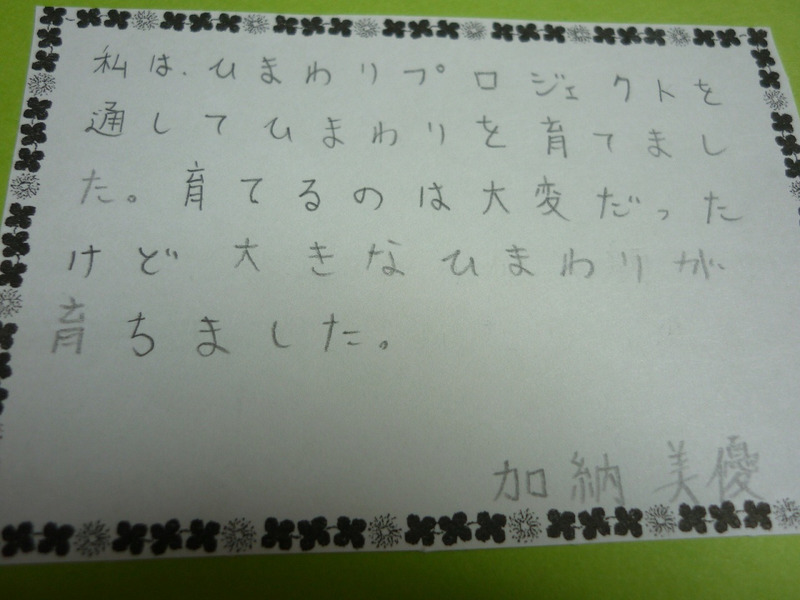 私は、ひまわりプロジェクトを
通してひまわりを育てまし
た。育てるのは大変だった
けど大きなひまわりが
育ちました。
加納 美優